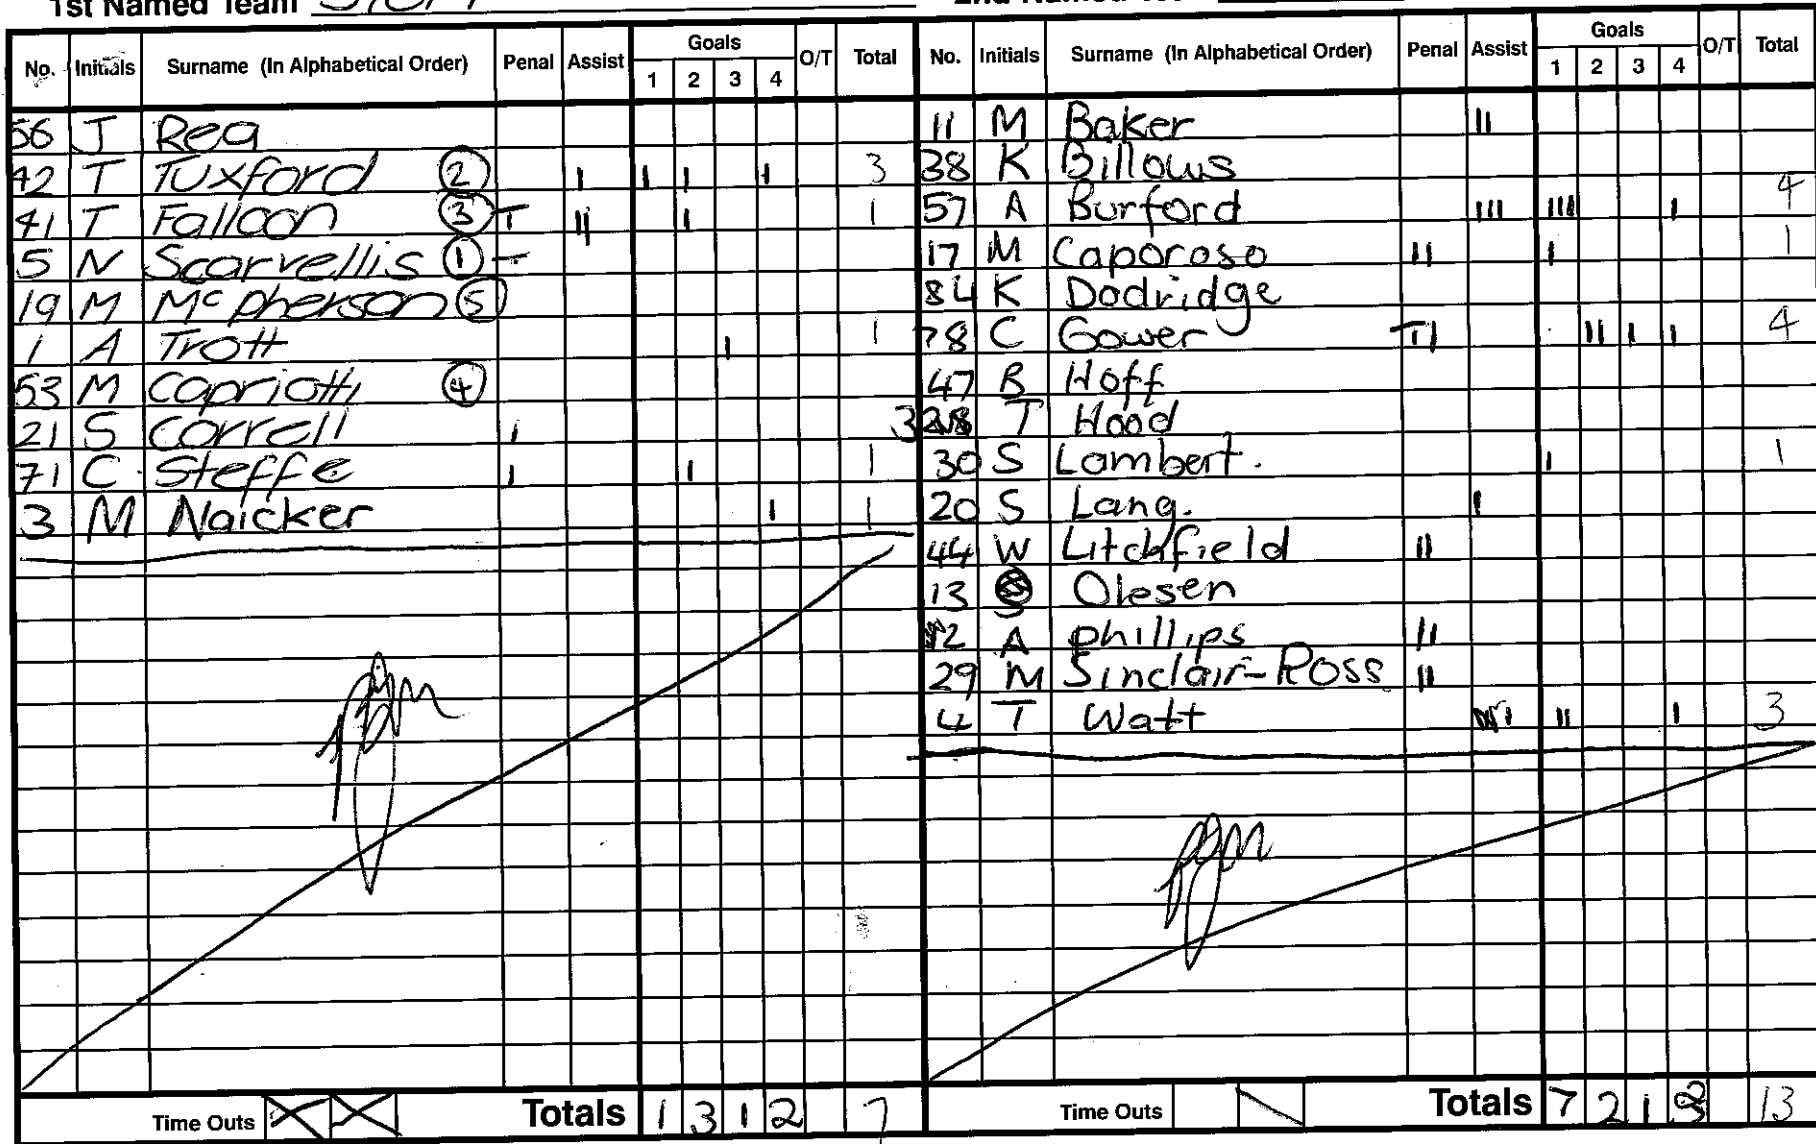 1st Named Team
No. Initials Surname (In Alphabetical Order) Penal Assist Goals 1 2 3 4 O/T Total
56 J Rea
42 T Tuxford 2 I I I I 3
41 T Falloon 3 T II I 1
5 N Scarvellis 1 -
19 M McPherson 5
1 A Trott I 1
53 M Capriotti 4
21 S Correll I
71 C Steffe I I 1
3 M Naicker I 1
Time Outs X X Totals 1 3 1 2 7
No. Initials Surname (In Alphabetical Order) Penal Assist Goals 1 2 3 4 O/T Total
11 M Baker II
38 K Billows
57 A Burford III III I 4
17 M Caporoso II I 1
84 K Dodridge
78 C Gower TI II I I 4
47 B Hoff
T Hood
30 S Lambert. I 1
20 S Lang. I
44 W Litchfield II
13 S Olesen
2 A Phillips II
29 M Sinclair-Ross II
4 T Watt II I 3
Time Outs \ Totals 7 2 1 3 13